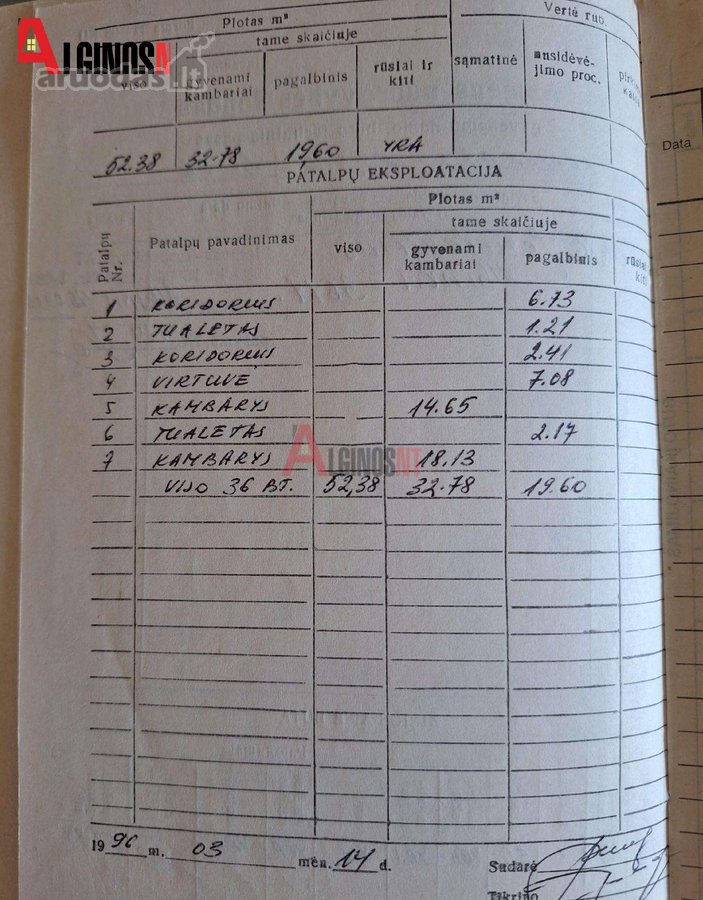 Plotas m²
Vertė rub.
ALGINOS N
aruodas.lt
viso
tame skaičiuje
gyvenami kambariai
pagalbinis
rūsiai ir kiti
sąmatinė
nusidėvėjimo proc.
Data
52.38 32.78 1960 YRA
PATALPŲ EKSPLOATACIJA
Patalpų Nr.
Patalpų pavadinimas
Plotas m²
viso
tame skaičiuje
gyvenami kambariai
pagalbinis
1 KORIDORIUS 6.73
2 TUALETAS 1.21
3 KORIDORIUS 2.41
4 VIRTUVĖ 7.08
5 KAMBARYS 14.65
6 TUALETAS 2.17
7 KAMBARYS 18.13
ALGINOSNT
VISO 36 BT. 52,38 32.78 19.60
1996 m. 03 mėn. 14 d.
Sudarė
Tikrino